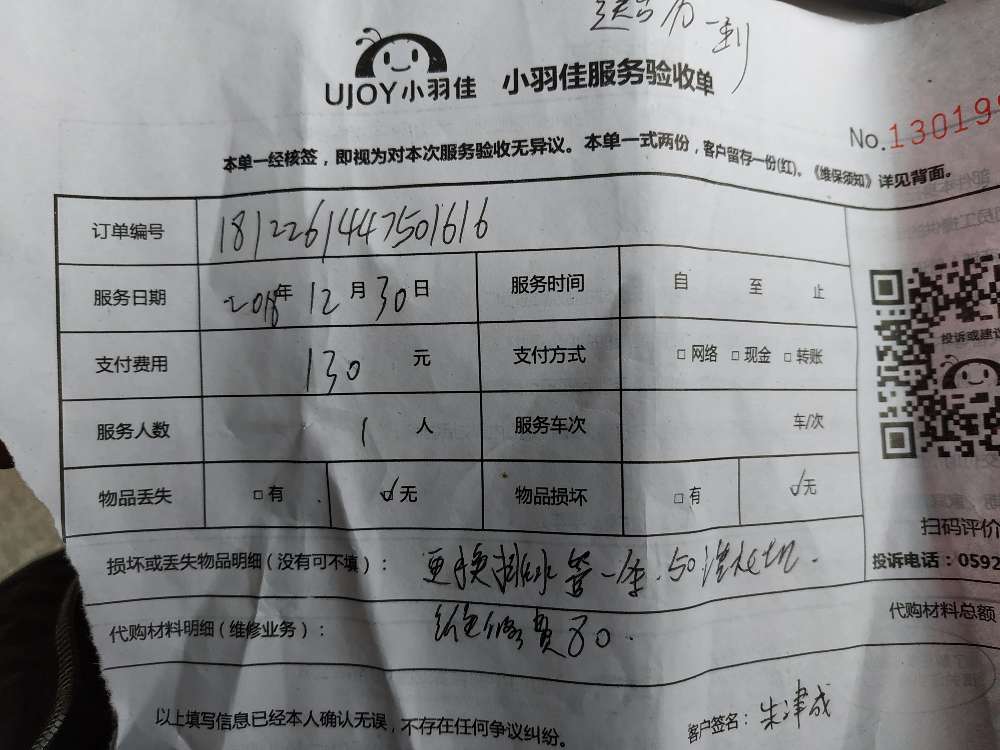 UJOY小羽佳 小羽佳服务验收单
No.130199
本单一经核签，即视为对本次服务验收无异议。本单一式两份，客户留存一份(红)。《维保须知》详见背面。
订单编号 1812261447501616
服务日期 2018年12月30日 服务时间 自 至 止
支付费用 130 元 支付方式 □网络 □现金 □转账
服务人数 1 人 服务车次 车/次
物品丢失 □有 ☑无 物品损坏 □有 ☑无
投诉或建议
扫码评价
投诉电话：0592
损坏或丢失物品明细(没有可不填)： 更换排水管一条.50洗衣机.
代购材料明细(维修业务)： 维修费80.
代购材料总额
以上填写信息已经本人确认无误，不存在任何争议纠纷。
客户签名：朱津成